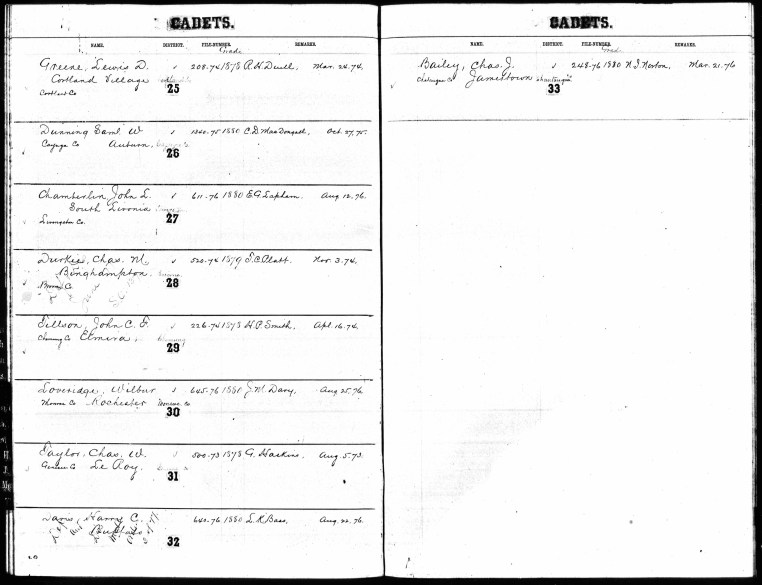 CADETS.
NAME. DISTRICT. FILE-NUMBER. REMARKS.
Grade
Greene, Lewis D. 208.74 1878 R.H. Duell, Mar. 24.74.
Cortland Village
Cortland Co 25
Dunning Saml W 1240.75 1880 C.D. MacDougall, Oct. 27, 75.
Cayuga Co Auburn,
26
Chamberlin, John L. 611.76 1880 E.G. Lapham. Aug 12.76.
South Livonia
Livingston Co. 27
Durkee, Chas. M. 520.74 1879 T.C. Platt. Nov. 3.74.
Binghampton.
Broome Co. 28
Tillson, John C. F. 226.74 1878 H.P. Smith. Apl. 16.74.
Elmira,
29
Loveridge, Wilbur 645.76 1880 J.M. Davy. Aug 25,76.
Monroe Co Rochester Monroe Co
30
Taylor, Chas. W. 500.73 1878 G. Hoskins. Aug. 5.73.
Genesee Co Le Roy.
31
Davis, Harry C. 640.76 1880 L.K. Bass. Aug. 22.76.
Buffalo
32
CADETS.
NAME. DISTRICT. FILE-NUMBER. REMARKS.
Grade
Bailey, Chas. J. 248.76 1880 N.I. Norton, Mar. 21.76
Jamestown Chautauqua
33